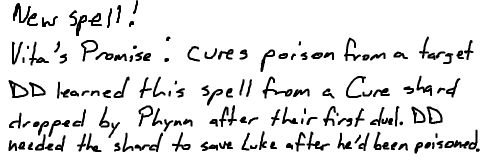 New spell!
Vita's Promise: cures poison from a target
DD learned this spell from a Cure shard
dropped by Phynn after their first duel. DD
needed the shard to save Luke after he'd been poisoned.